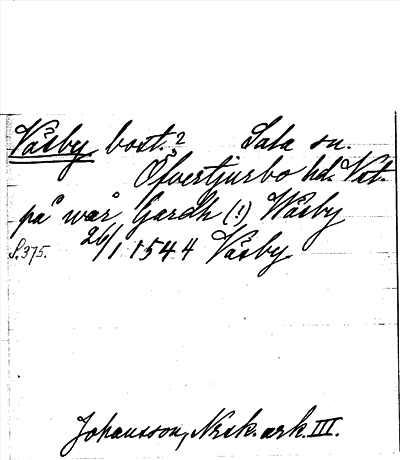 Våsby. bost.? Sala sn.
Öfvertjurbo hd. Vst.
på wår Gardh (!) Wåsby
S. 375. 26/1 1544 Våsby
Johansson, Norsk. ark. III.